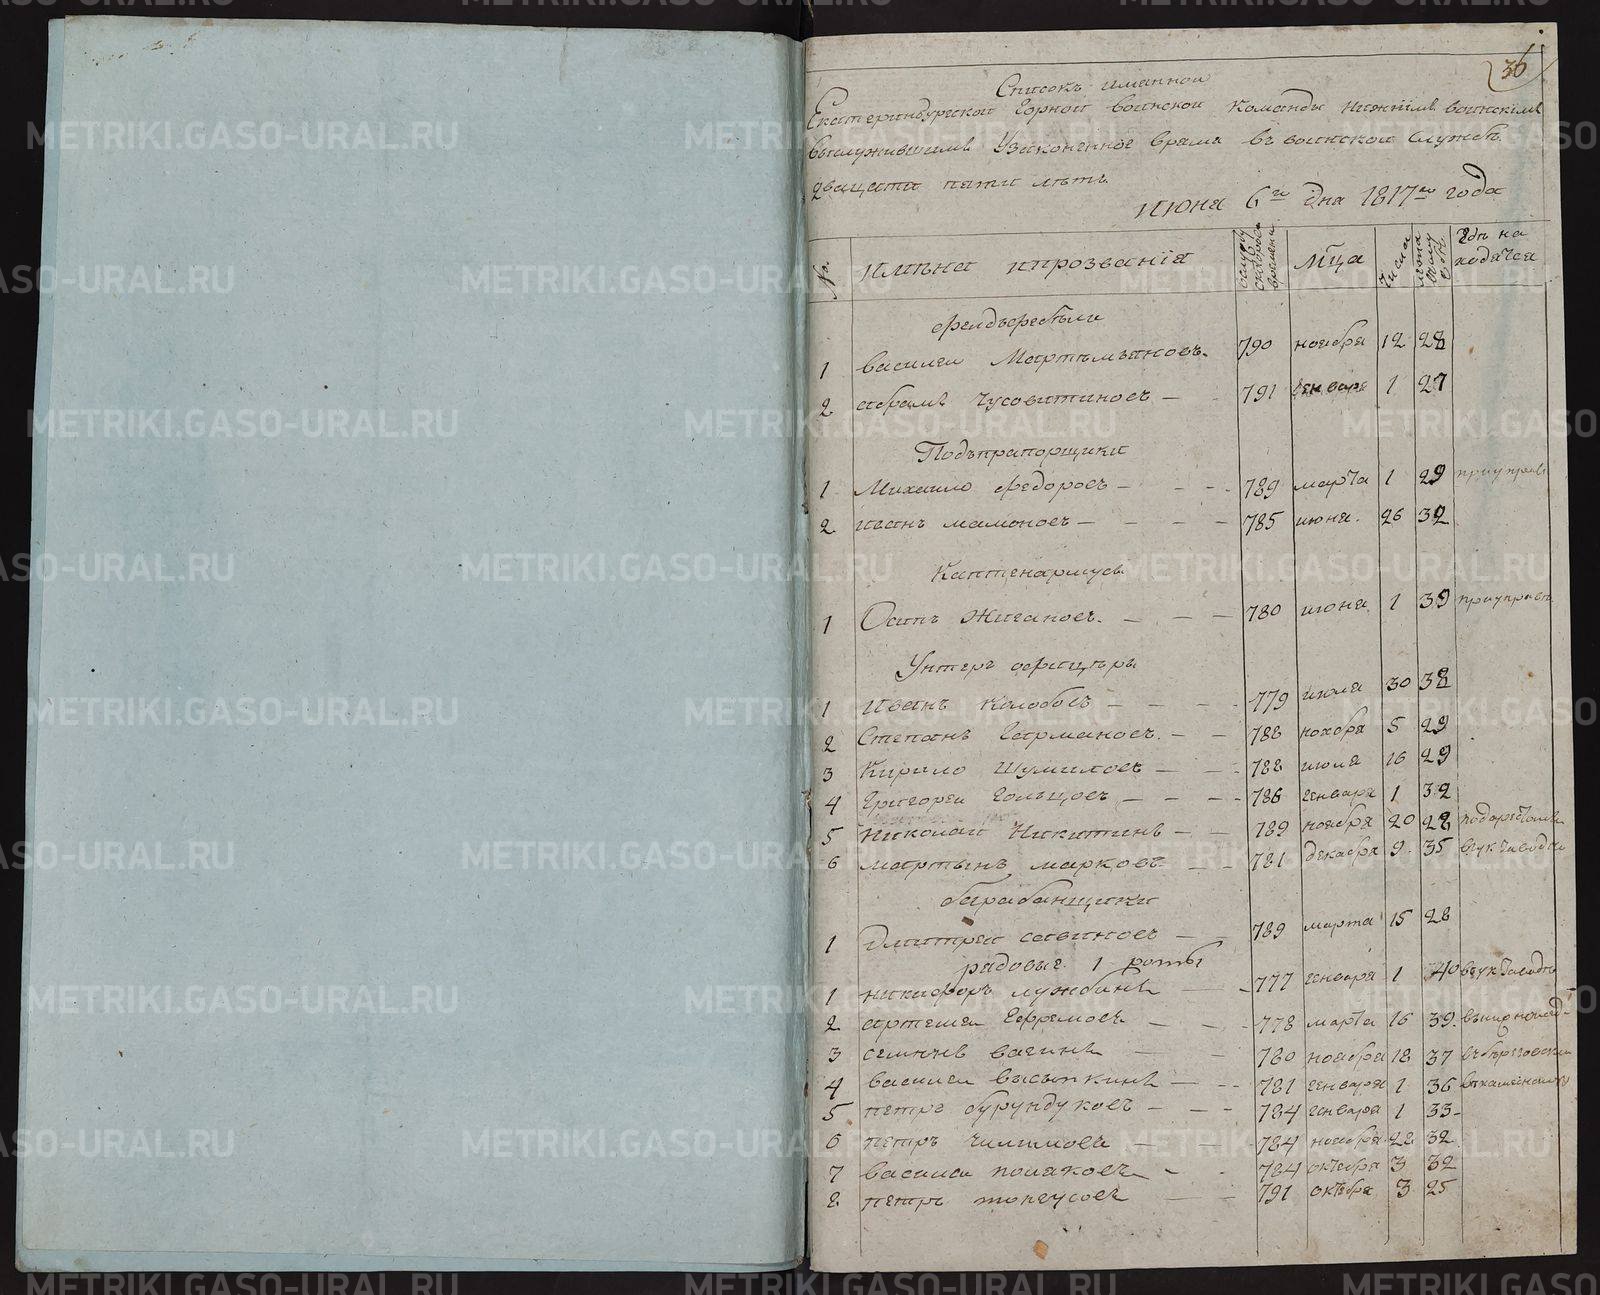 36
Списокъ иманной
Екатеринбургской Горной воинской Команды нижнимъ воинскимъ
выслужившимъ Узаконенное время въ воинской Службѣ
дватцати пяти лѣтъ.
июня 6го дня 1817го года
№ имѣна ипрозванiя Мца числа гдѣ на ходятся
фелдъфебѣли
1 василеи Мартемьяновъ. 790 ноября 12 28
2 абрамъ Чусовитиновъ 791 генваря 1 27
Подъпрапорщики
1 Михаило федоровъ 789 марта 1 29
2 иванъ мамоновъ 785 июня. 26 32
Каптенармусъ
1 Осипъ Жигановъ. 780 июня 1 39
Унтеръ офицѣры
1 Иванъ Колобовъ 779 июля 30 38
2 Степанъ Германовъ. 788 ноября 5 29
3 Кирило Шумиловъ 788 июля 16 29
4 Григореи Гольцовъ 786 генваря 1 32
5 Николаи Никитинъ 789 ноября 20 28
6 мартынъ марковъ 781 декабря 9 35
барабанщики
1 Дмитреи савиновъ 789 марта 15 28
рядовые 1 роты
1 никифоръ лужбинъ 777 генваря 1 40
2 артемеи Ефремовъ 778 марта 16 39.
3 семенъ вагинъ 780 ноября 18 37
4 василеи высыпкинъ 781 генваря 1 36
5 петръ бурундуковъ 784 генваря 1 33
6 петръ 784 ноября 22 32
7 василеи поляковъ 784 октября 3 32
8 петръ 791 октября 3 25
METRIKI.GASO-URAL.RU